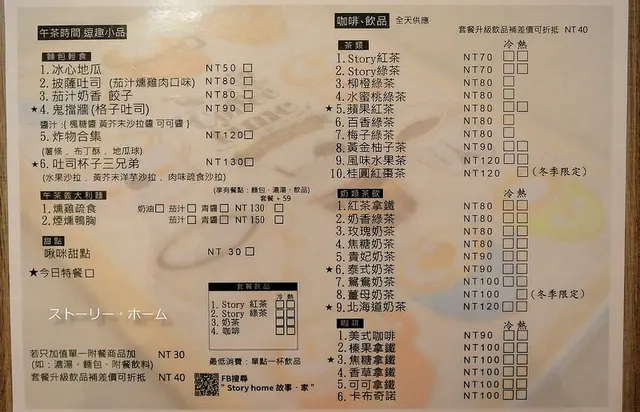 午茶時間 逗趣小品
麵包輕食
1. 冰心地瓜 NT50 □
2. 披薩吐司 (茄汁燻雞肉口味) NT80 □
3. 茄汁奶香 餃子 NT80 □
★4. 鬼擋牆(格子吐司) NT90 □
醬汁 :{ 楓糖醬 黃芥末沙拉醬 可可醬 }
5. 炸物合集 NT120□
(薯條﹑布丁酥﹑地瓜球)
★6. 吐司杯子三兄弟 NT130□
(水果沙拉﹑黃芥末洋芋沙拉﹑肉味蔬食沙拉)
午茶義大利麵 (享有餐點：麵包、濃湯、飲品)
套餐 + 59
1. 燻雞蔬食 奶油□ 茄汁□ 青醬□ NT 130 □
2. 煙燻鴨胸 茄汁□ 青醬□ NT 150 □
甜點
啾咪甜點 NT 30 □
★今日特餐□
ストーリー・ホーム
套餐飲品
冷 熱
1. Story 紅茶
2. Story 綠茶
3. 奶茶
4. 咖啡
最低消費：單點一杯飲品
若只加值單一附餐商品加 NT 30
(如：濃湯、麵包、附餐飲料)
套餐升級飲品補差價可折抵 NT 40
FB搜尋
" Story home 故事・家 "
咖啡、飲品 全天供應
套餐升級飲品補差價可折抵 NT 40
茶類 冷 熱
1. Story紅茶 NT70 □□
2. Story綠茶 NT70 □□
3. 柳橙綠茶 NT80 □
4. 水蜜桃綠茶 NT80 □
★5. 蘋果紅茶 NT80 □□
6. 百香綠茶 NT80 □
7. 梅子綠茶 NT80 □
8. 黃金柚子茶 NT90 □□
9. 風味水果茶 NT120 □□
10. 桂圓紅棗茶 NT120 □ (冬季限定)
奶類茶飲 冷 熱
1. 紅茶拿鐵 NT80 □□
2. 奶香綠茶 NT80 □□
3. 玫瑰奶茶 NT80 □□
4. 焦糖奶茶 NT80 □□
5. 貴妃奶茶 NT90 □□
★6. 泰式奶茶 NT90 □□
7. 鴛鴦奶茶 NT100 □□
8. 薑母奶茶 NT100 □ (冬季限定)
★9. 北海道奶茶 NT120□□
咖啡 冷 熱
1. 美式咖啡 NT90 □□
2. 榛果拿鐵 NT100 □□
★3. 焦糖拿鐵 NT100 □□
4. 香草拿鐵 NT100 □□
5. 可可拿鐵 NT100 □□
6. 卡布奇諾 NT100 □□